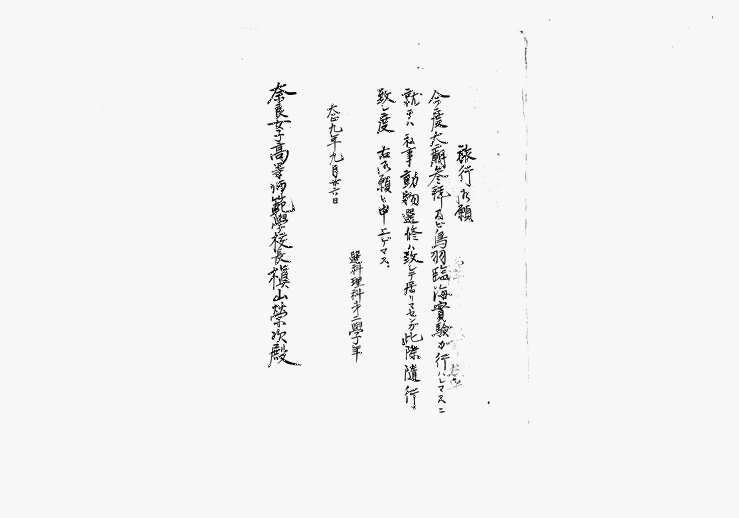 旅行御願
今度大廟参拝及ビ鳥羽臨海實驗ガ行ハレマスニ
就テハ私事動物選修ハ致シテ居リマセンガ此際隨行
致シ度右御願ヒ申上ゲマス
大正九年九月廿六日
選科理科第二學年
奈良女子高等師範學校長槇山榮次殿